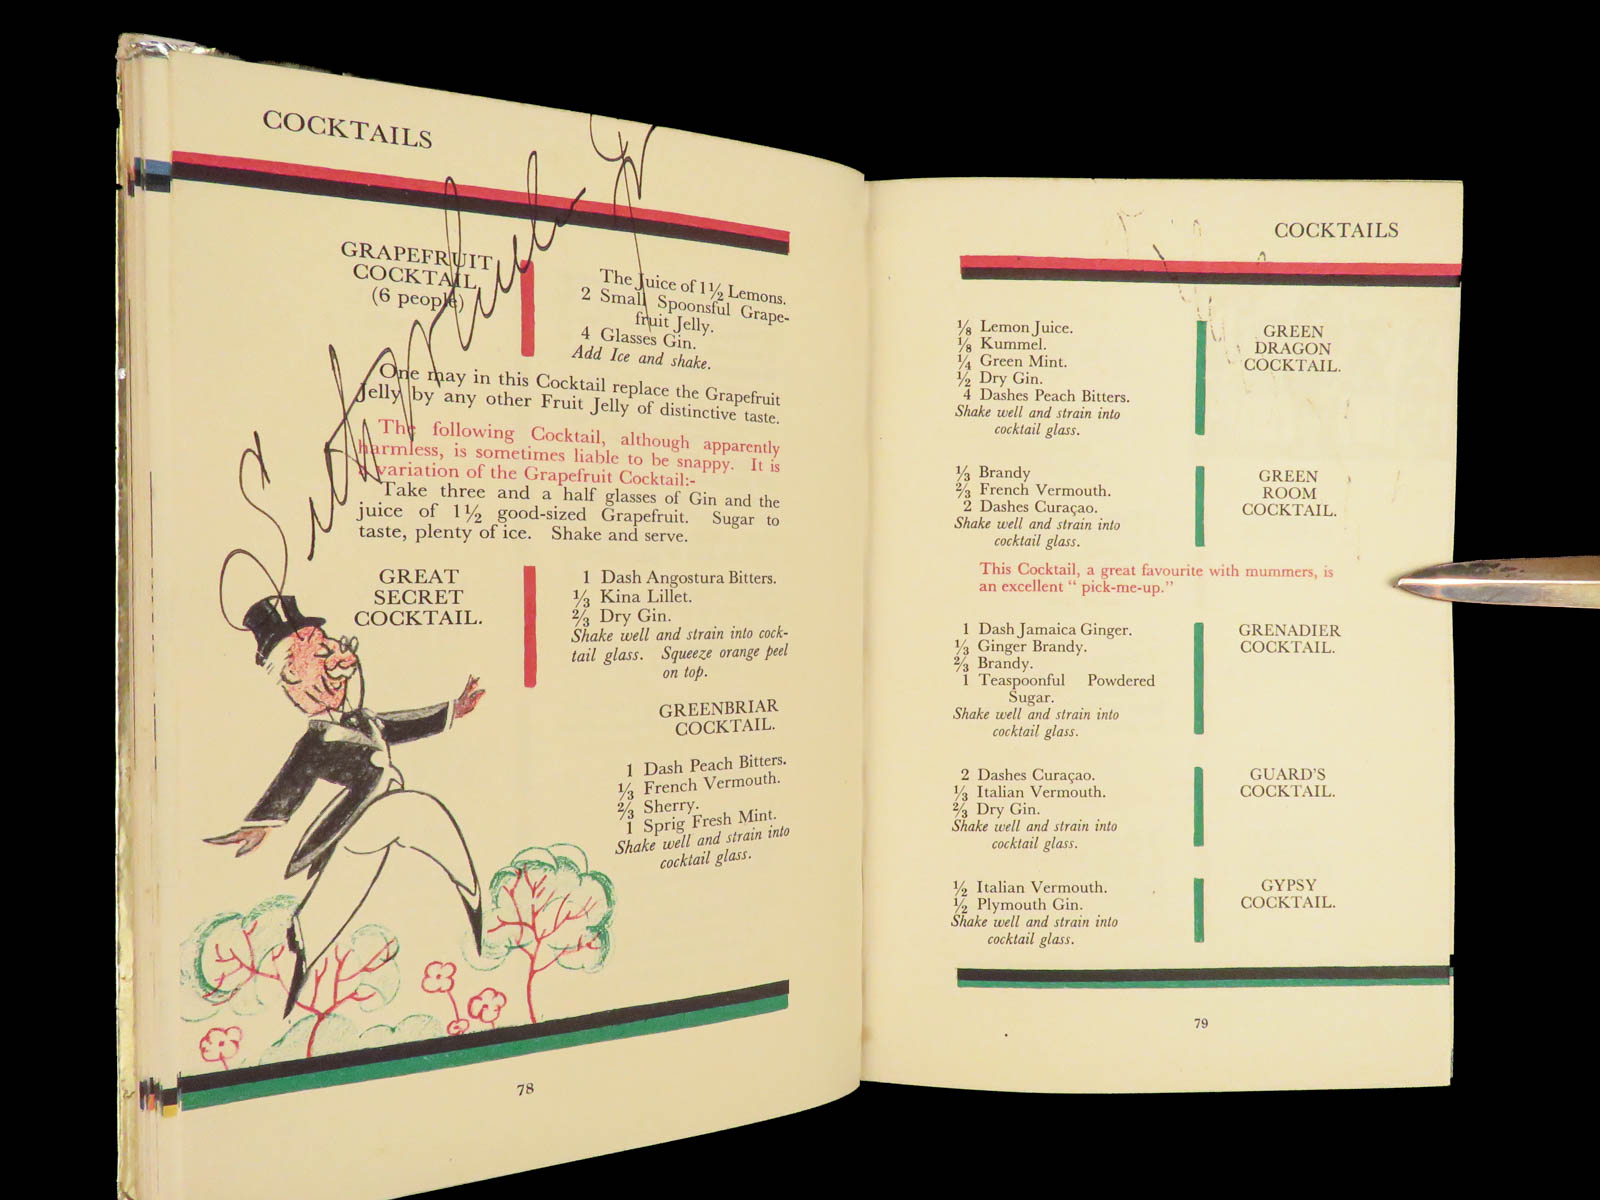 COCKTAILS
GRAPEFRUIT
COCKTAIL
(6 people)
The Juice of 1½ Lemons.
2 Small Spoonsful Grape-
fruit Jelly.
4 Glasses Gin.
Add Ice and shake.
One may in this Cocktail replace the Grapefruit
Jelly by any other Fruit Jelly of distinctive taste.
The following Cocktail, although apparently
harmless, is sometimes liable to be snappy. It is
a variation of the Grapefruit Cocktail:-
Take three and a half glasses of Gin and the
juice of 1½ good-sized Grapefruit. Sugar to
taste, plenty of ice. Shake and serve.
GREAT
SECRET
COCKTAIL.
1 Dash Angostura Bitters.
⅓ Kina Lillet.
⅔ Dry Gin.
Shake well and strain into cock-
tail glass. Squeeze orange peel
on top.
GREENBRIAR
COCKTAIL.
1 Dash Peach Bitters.
⅓ French Vermouth.
⅔ Sherry.
1 Sprig Fresh Mint.
Shake well and strain into
cocktail glass.
78
COCKTAILS
⅛ Lemon Juice.
⅛ Kummel.
¼ Green Mint.
½ Dry Gin.
4 Dashes Peach Bitters.
Shake well and strain into
cocktail glass.
GREEN
DRAGON
COCKTAIL.
⅓ Brandy
⅔ French Vermouth.
2 Dashes Curaçao.
Shake well and strain into
cocktail glass.
GREEN
ROOM
COCKTAIL.
This Cocktail, a great favourite with mummers, is
an excellent “ pick-me-up.”
1 Dash Jamaica Ginger.
⅓ Ginger Brandy.
⅔ Brandy.
1 Teaspoonful Powdered
Sugar.
Shake well and strain into
cocktail glass.
GRENADIER
COCKTAIL.
2 Dashes Curaçao.
⅓ Italian Vermouth.
⅔ Dry Gin.
Shake well and strain into
cocktail glass.
GUARD'S
COCKTAIL.
½ Italian Vermouth.
½ Plymouth Gin.
Shake well and strain into
cocktail glass.
GYPSY
COCKTAIL.
79